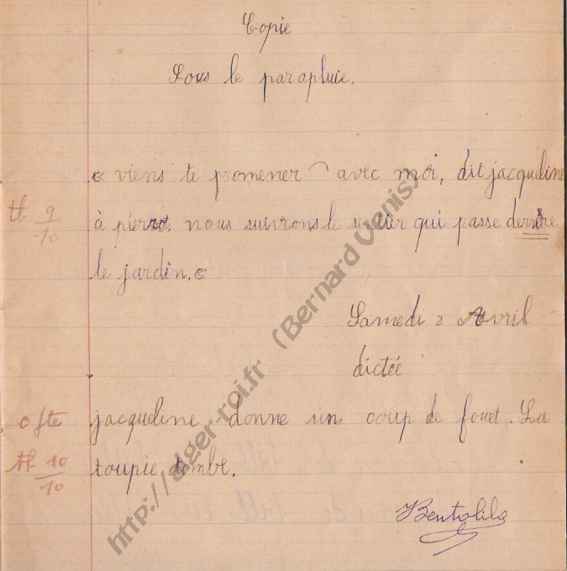 Copie
Sous le parapluie.
« viens te pomener avec moi, dit jacqueline
tb 9/10
à pierrot. nous suivrons le sentier qui passe derrière
le jardin. «
Samedi 2 Avril
dictée
0 fte
jacqueline donne un coup de fouet. La
tb 10/10
toupie tombe.
Bentolila
http://alger-roi.fr (Bernard Venis)